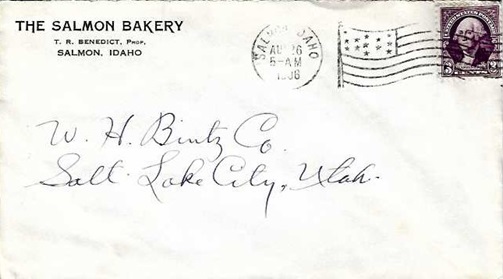 THE SALMON BAKERY
T. R. BENEDICT, PROP.
SALMON, IDAHO
SALMON IDAHO
AUG 26
5-AM
1936
3 3
W. H. Bintz Co.
Salt Lake City, Utah.